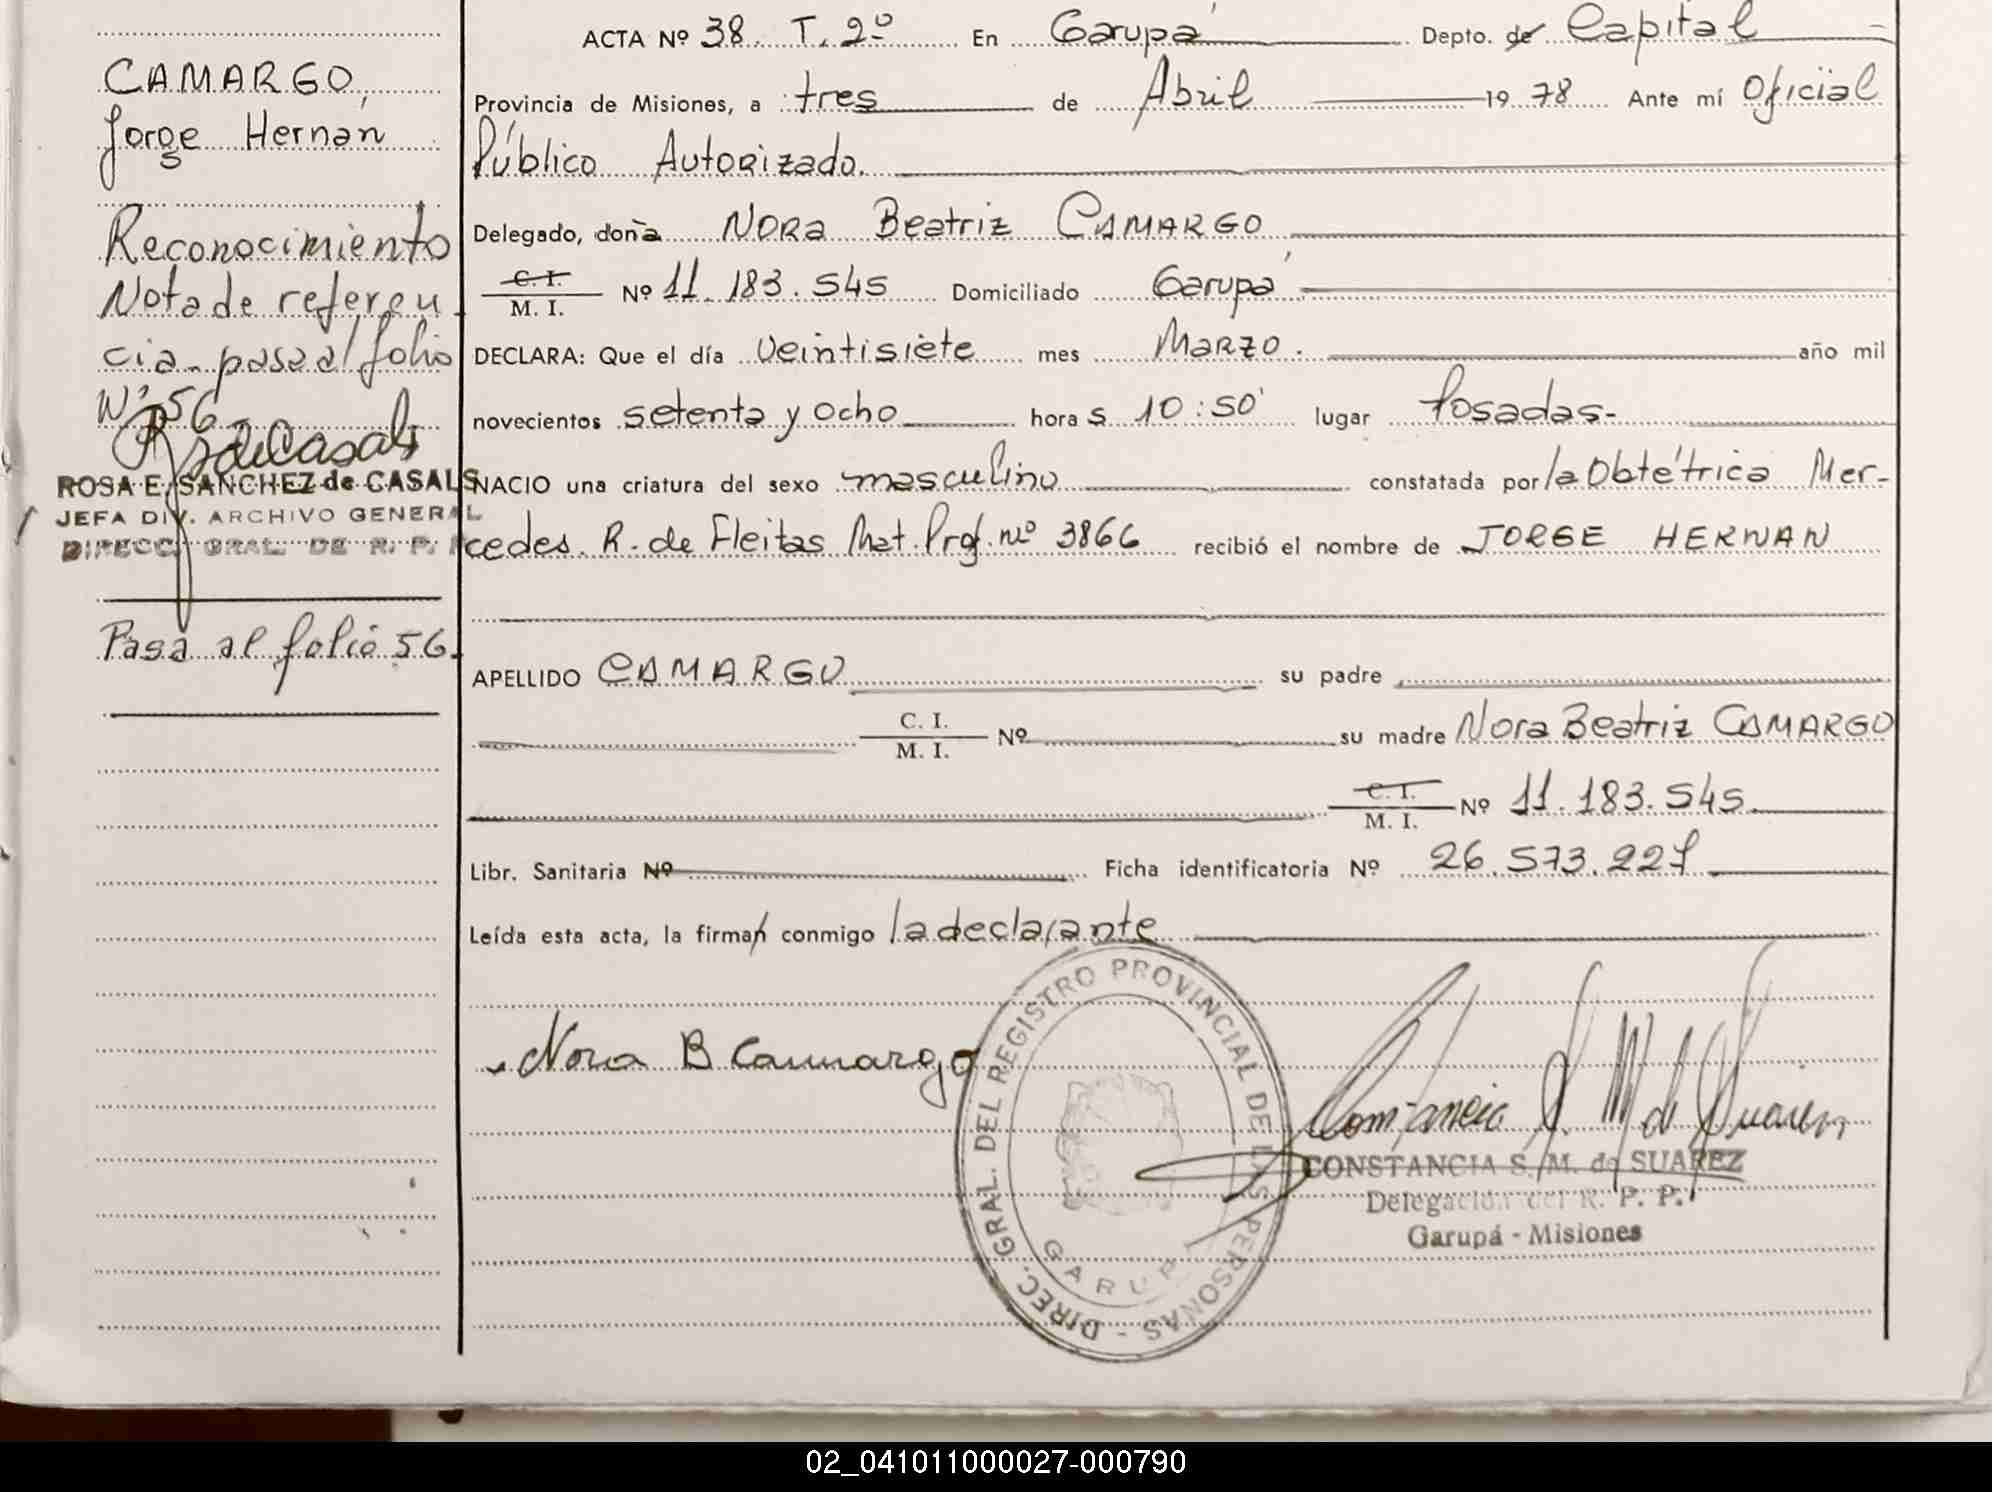 CAMARGO,
Jorge Hernán
Reconocimiento
Nota de referen
cia - pasa al folio
Nº 56
ROSA E. SANCHEZ de CASALS
JEFA DIV. ARCHIVO GENERAL
DIRECC. GRAL. DE R. P.
Pasa al folio 56.
ACTA Nº 38 T. 2º En Garupá Depto. de Capital
Provincia de Misiones, a tres de Abril 1978 Ante mí Oficial
Público Autorizado.
Delegado, doña NORA Beatriz CAMARGO
C. I.
M. I. Nº 11.183.545 Domiciliado Garupá
DECLARA: Que el día veintisiete mes MARZO. año mil
novecientos setenta y ocho hora s 10:50' lugar Posadas-
NACIO una criatura del sexo masculino constatada por la Obtétrica Mer-
cedes R. de Fleitas Mat. Prof. nº 3866 recibió el nombre de JORGE HERNAN
APELLIDO CAMARGO su padre
C. I.
M. I. Nº su madre Nora Beatriz CAMARGO
C. I.
M. I. Nº 11.183.545
Libr. Sanitaria Nº Ficha identificatoria Nº 26.573.227
Leída esta acta, la firman conmigo la declarante
Nora B Camargo
DIREC. GRAL. DEL REGISTRO PROVINCIAL DE LAS PERSONAS -
GARUP
Constancia S. M. de Suarez
CONSTANCIA S. M. de SUAREZ
Delegación del R. P. P.
Garupá - Misiones
02_041011000027-000790